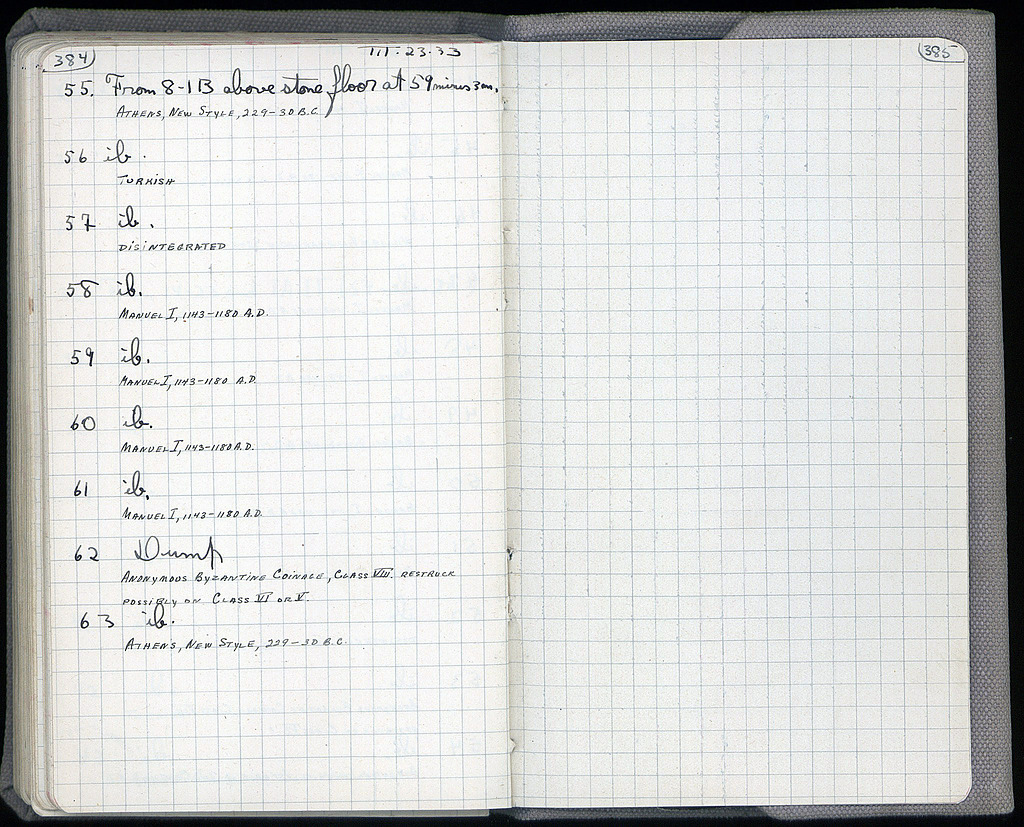 384
III·23·33
55. From 8-1B above stone floor at 59 minus 3 m.
ATHENS, NEW STYLE, 229-30 B.C.
56 ib.
TURKISH
57 ib.
DISINTEGRATED
58 ib.
MANUEL I, 1143-1180 A.D.
59 ib.
MANUEL I, 1143-1180 A.D.
60 ib.
MANUEL I, 1143-1180 A.D.
61 ib.
MANUEL I, 1143-1180 A.D.
62 Dump
ANONYMOUS BYZANTINE COINAGE, CLASS VIII. RESTRUCK
POSSIBLY ON CLASS VI OR V.
63 ib.
ATHENS, NEW STYLE, 229-30 B.C.
385